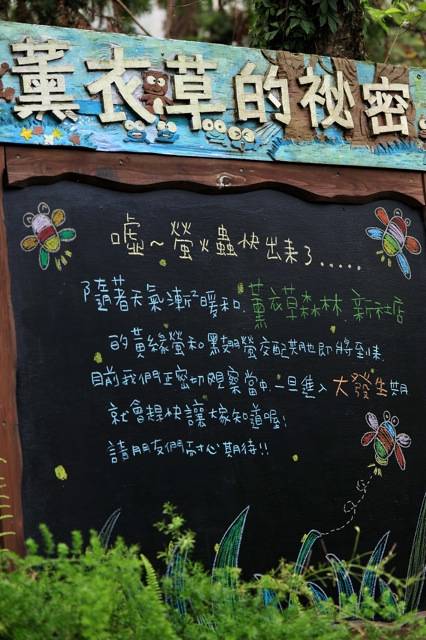 薰衣草的祕密
噓~螢火蟲快出來了.....
隨著天氣漸漸暖和,薰衣草森林 新社店
的黃緣螢和黑翅螢交配期也即將到來.
目前我們正密切觀察當中,一旦進入大發生期
就會趕快讓大家知道喔!
請朋友們耐心期待!!